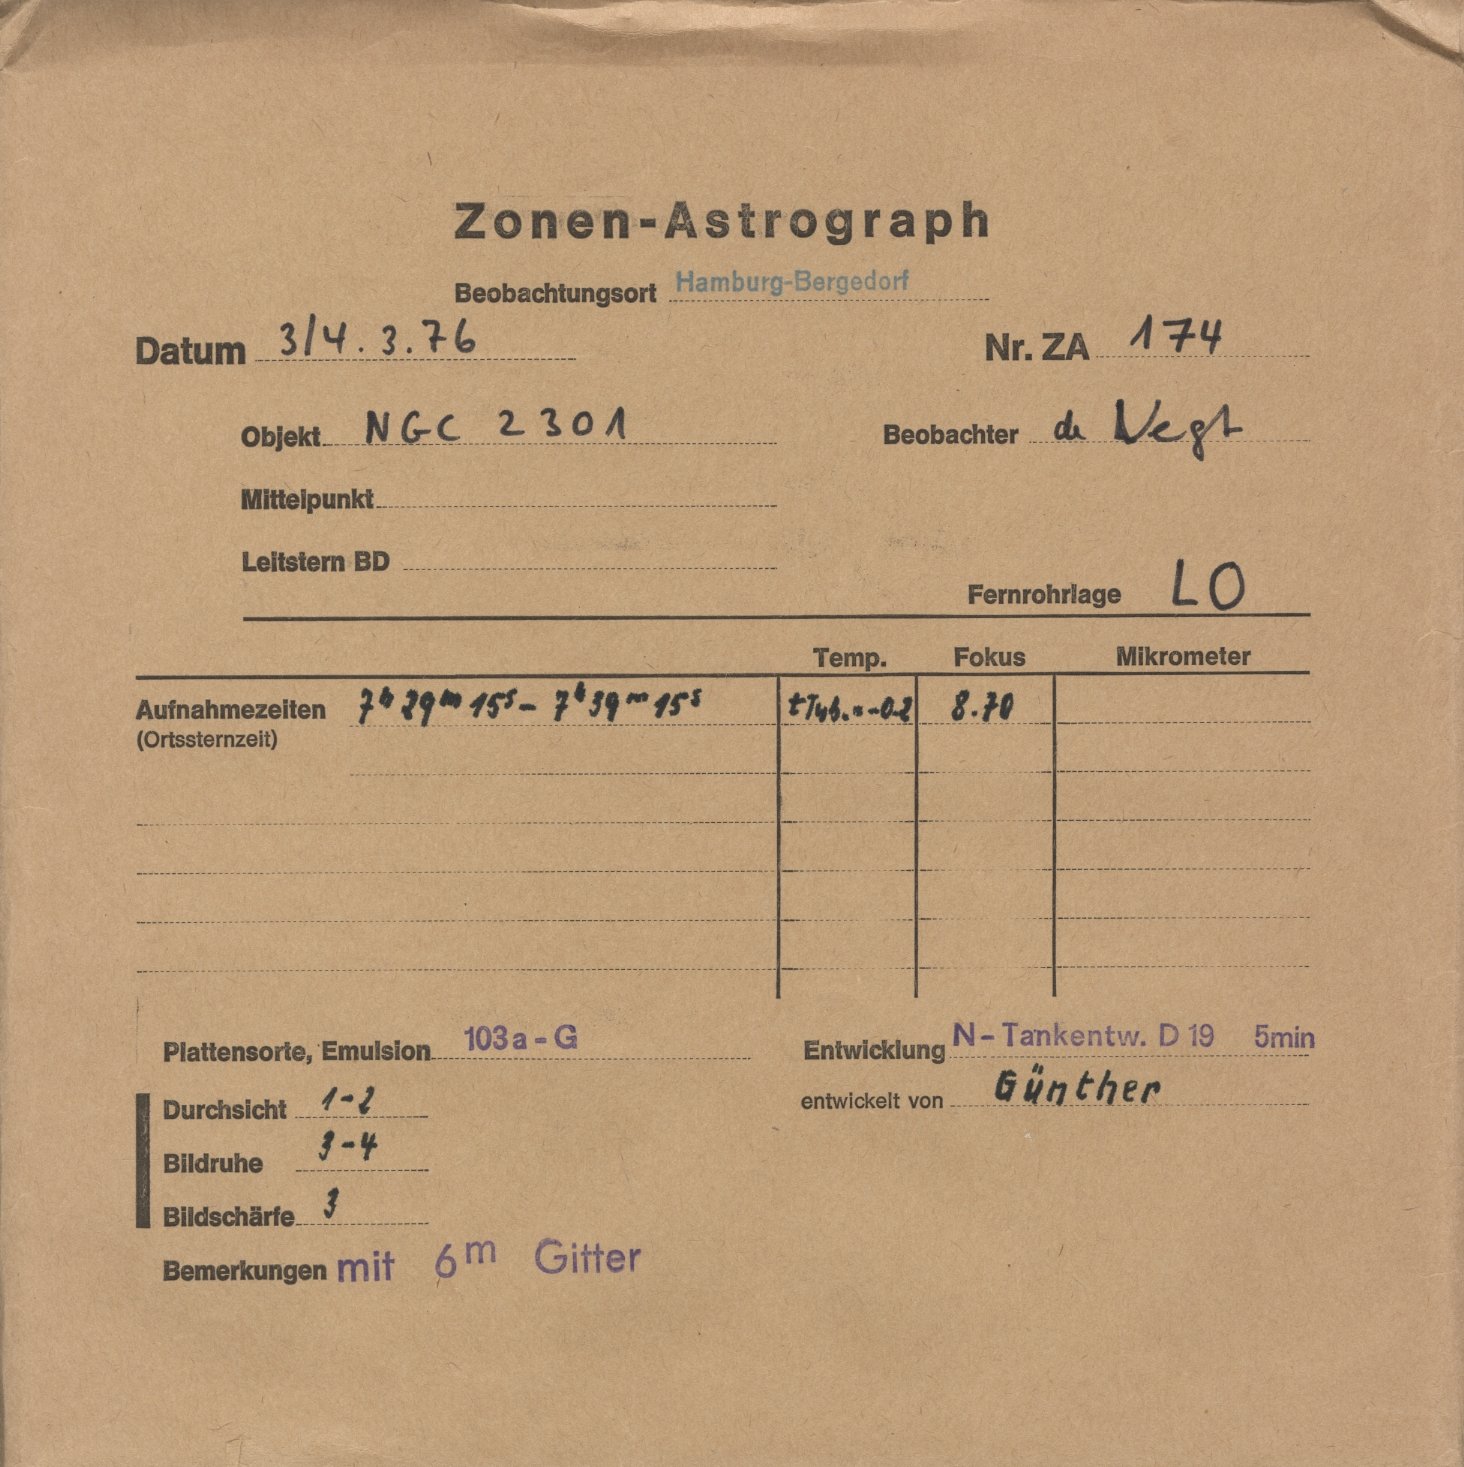 Zonen-Astrograph
Beobachtungsort Hamburg-Bergedorf
Datum 3/4.3.76 Nr. ZA 174
Objekt NGC 2301 Beobachter de Vegt
Mittelpunkt
Leitstern BD
Fernrohrlage LO
Temp. Fokus Mikrometer
Aufnahmezeiten 7h 29m 15s – 7h 39m 15s tTub.=-0.2 8.70
(Ortssternzeit)
Plattensorte, Emulsion 103a-G Entwicklung N-Tankentw. D 19 5min
Durchsicht 1-2 entwickelt von Günther
Bildruhe 3-4
Bildschärfe 3
Bemerkungen mit 6m Gitter